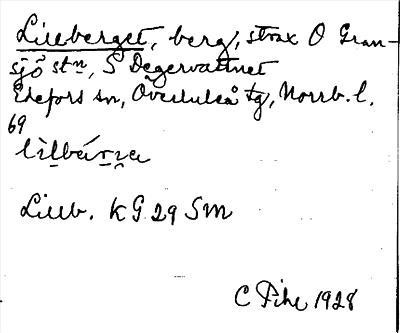 Lilleberget, berg, strax O Gran-
sjö stn, S Degervattnet
Edefors sn, Överluleå tg, Norrb. l.
69
Lilleb. KG 29 SM
C Pihl 1928